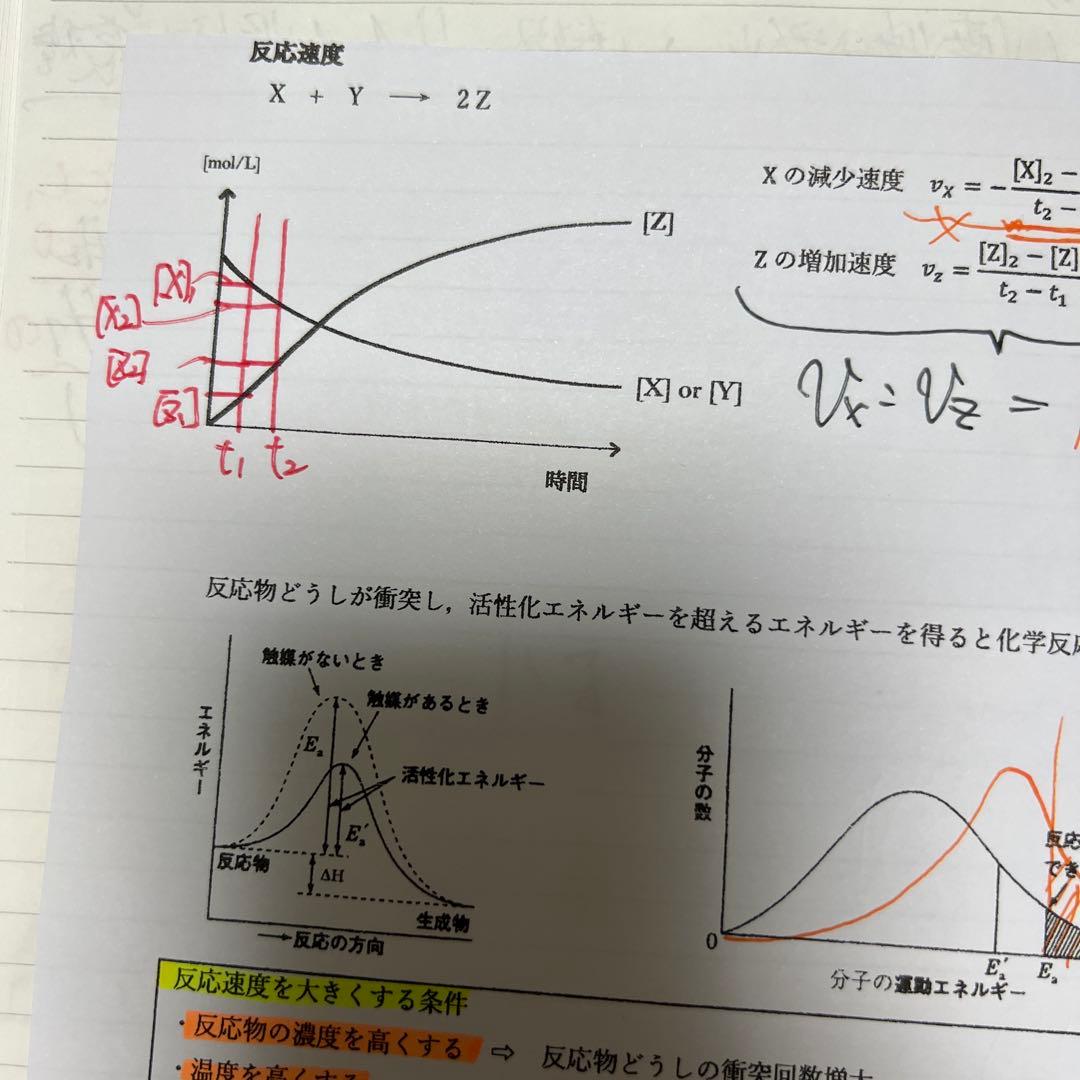 反応速度
X + Y → 2Z
[mol/L]
[Z]
[X]₁
[X₂]
[Z₂]
[Z₁]
[X] or [Y]
t₁ t₂
時間
Xの減少速度 vX = − [X]₂ −
t₂ −
Zの増加速度 vZ = [Z]₂ − [Z]
t₂ − t₁
Vx : Vz =
反応物どうしが衝突し，活性化エネルギーを超えるエネルギーを得ると化学反応
触媒がないとき
触媒があるとき
エネルギー
Eₐ
活性化エネルギー
Eₐ′
反応物
ΔH
生成物
→反応の方向
分子の数
反応
でき
0
Eₐ′
Eₐ
分子の運動エネルギー
反応速度を大きくする条件
・反応物の濃度を高くする ⇨ 反応物どうしの衝突回数増大
・温度を高くする